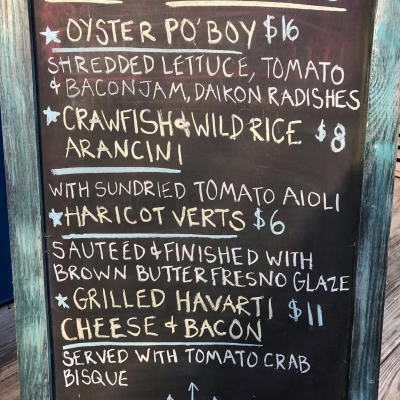 OYSTER PO'BOY $16
SHREDDED LETTUCE, TOMATO
& BACON JAM, DAIKON RADISHES
CRAWFISH & WILD RICE $8
ARANCINI
WITH SUNDRIED TOMATO AIOLI
HARICOT VERTS $6
SAUTEÉD & FINISHED WITH
BROWN BUTTER FRESNO GLAZE
GRILLED HAVARTI $11
CHEESE & BACON
SERVED WITH TOMATO CRAB
BISQUE